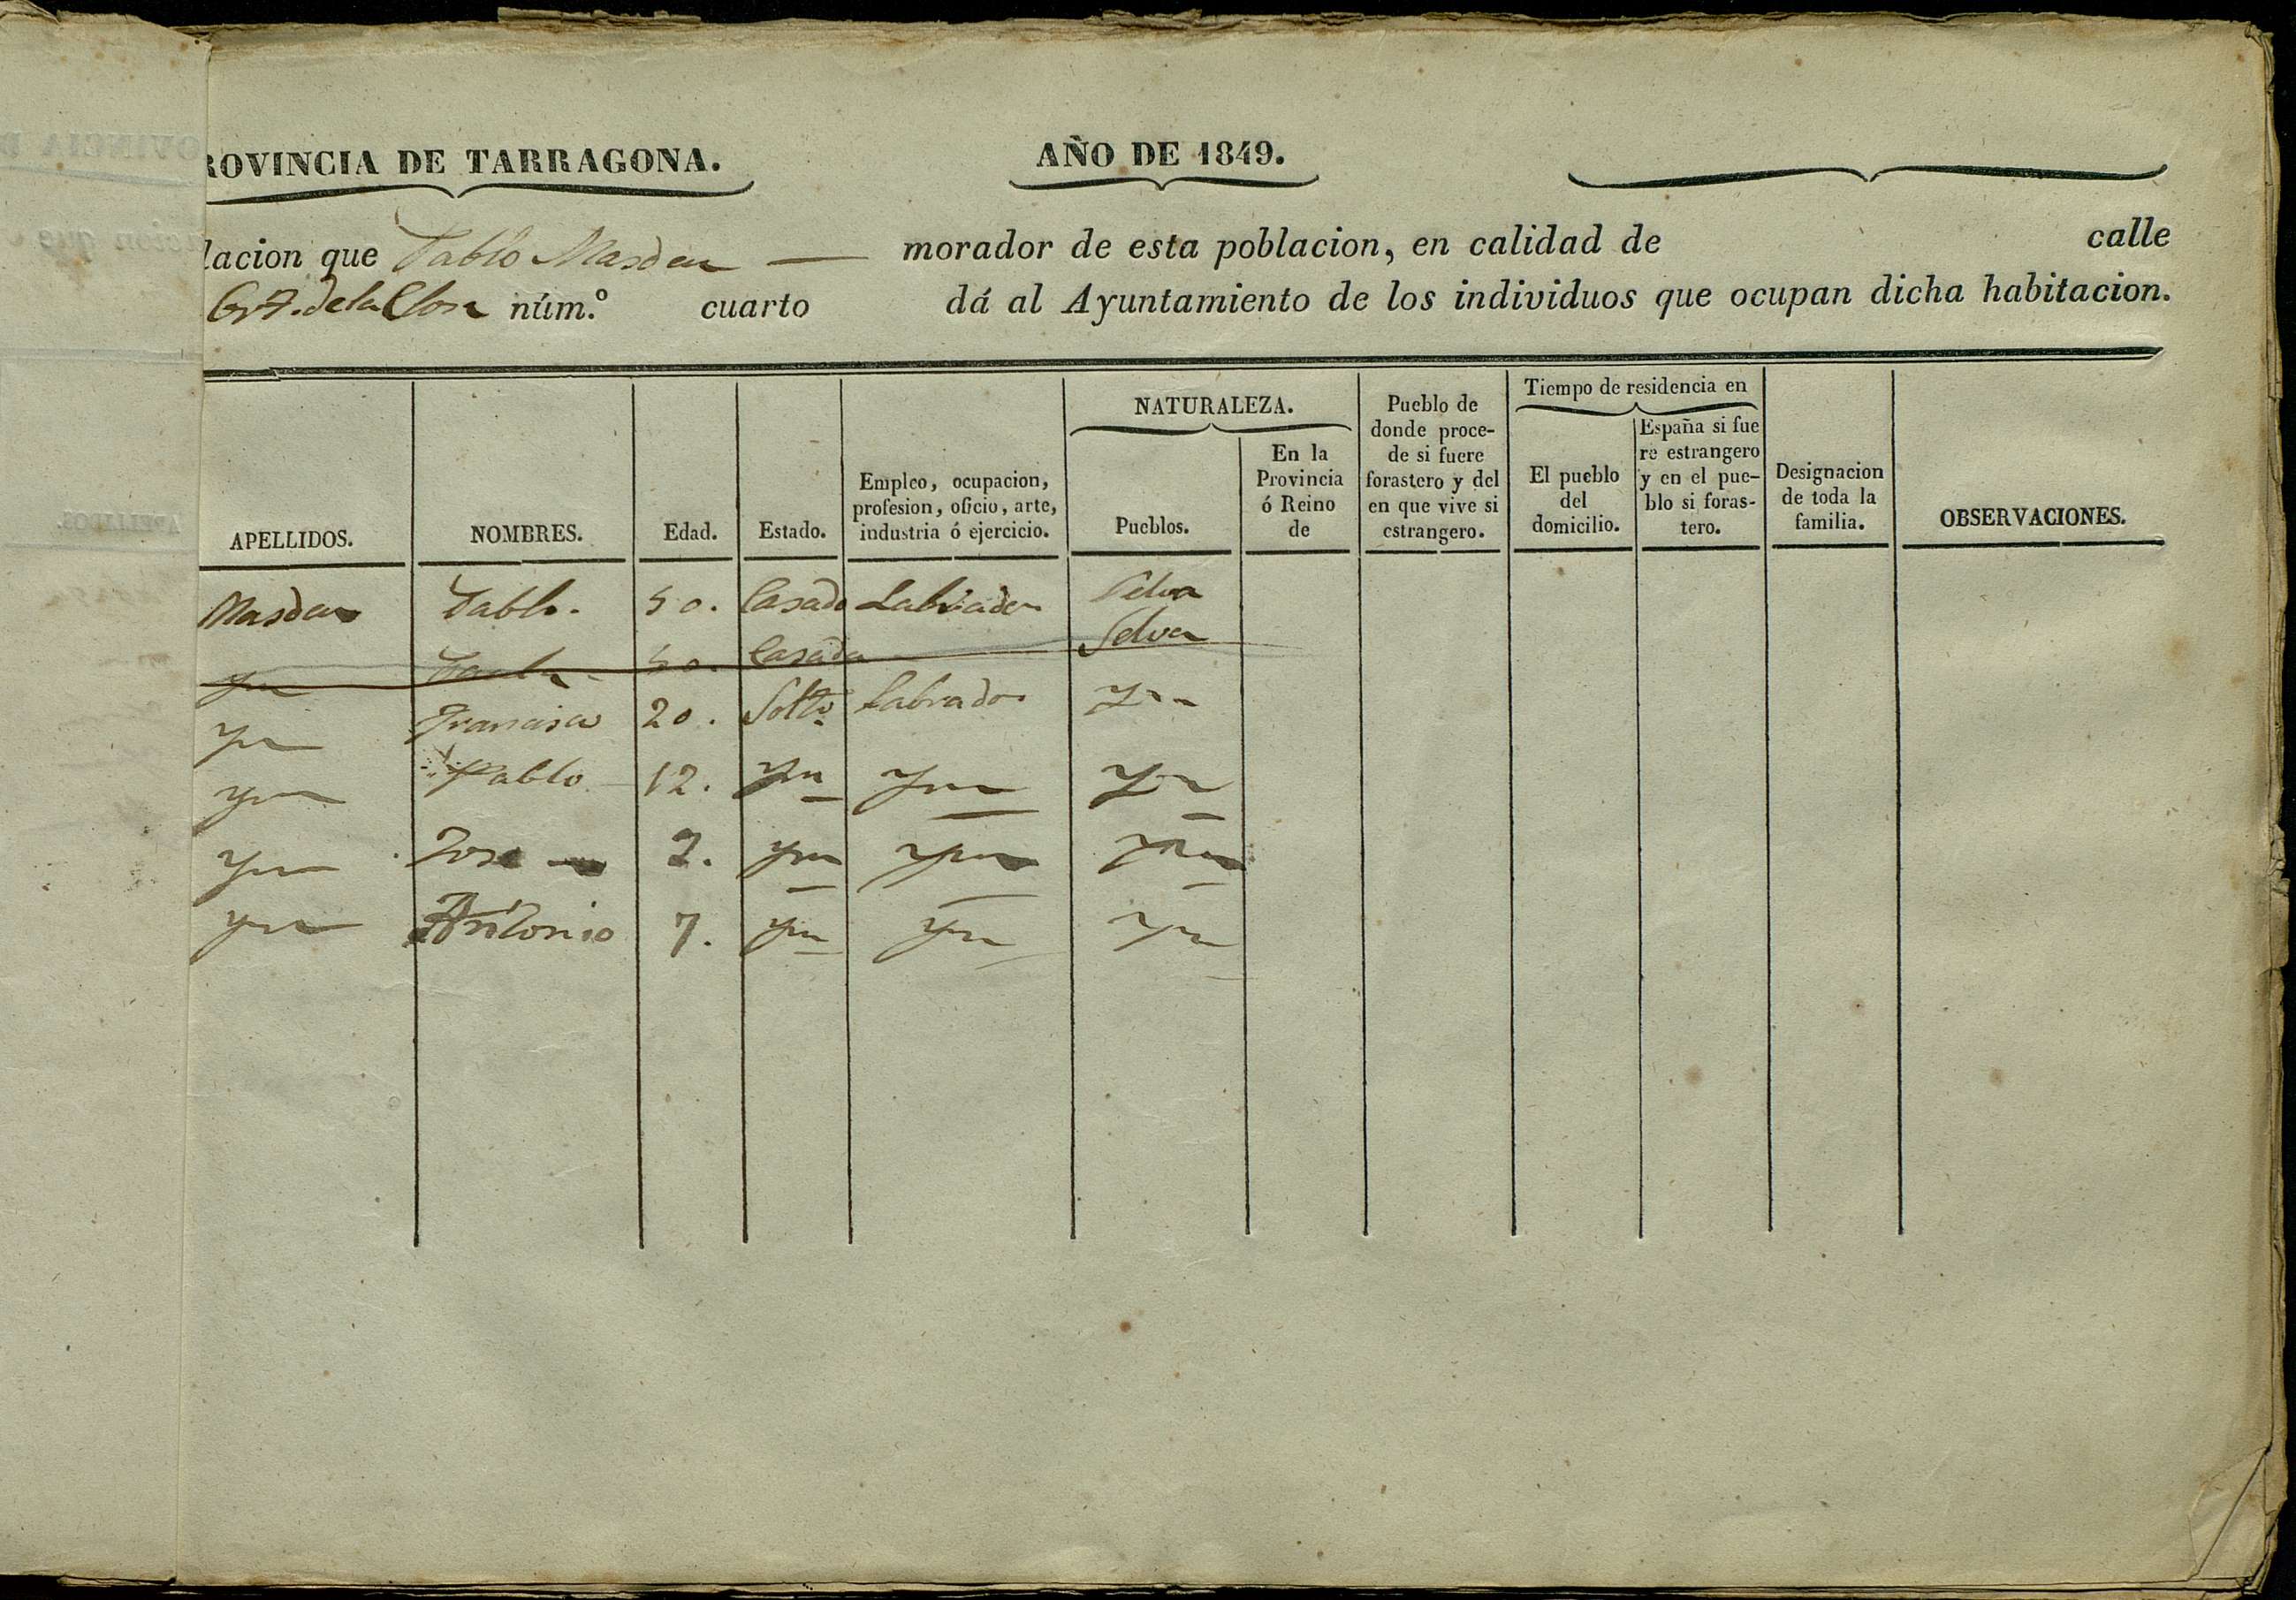 ROVINCIA DE TARRAGONA.
AÑO DE 1849.
lacion que Pablo Masdeu — morador de esta poblacion, en calidad de calle
de la núm.º cuarto dá al Ayuntamiento de los individuos que ocupan dicha habitacion.
APELLIDOS.
NOMBRES.
Edad.
Estado.
Empleo, ocupacion,
profesion, oficio, arte,
industria ó ejercicio.
NATURALEZA.
Pueblos.
En la
Provincia
ó Reino
de
Pueblo de
donde proce-
de si fuere
forastero y del
en que vive si
estrangero.
Tiempo de residencia en
El pueblo
del
domicilio.
España si fue
re estrangero
y en el pue-
blo si foras-
tero.
Designacion
de toda la
familia.
OBSERVACIONES.
Masdeu Pablo. 50. Casado Labrador Selva
50. Casada Selva
Yn Francisco 20. Solto Labrador Yn
Yn Pablo 12. Yn Yn Yn
Yn Jose 2. Yn Yn Yn
Yn Antonio 7. Yn Yn Yn